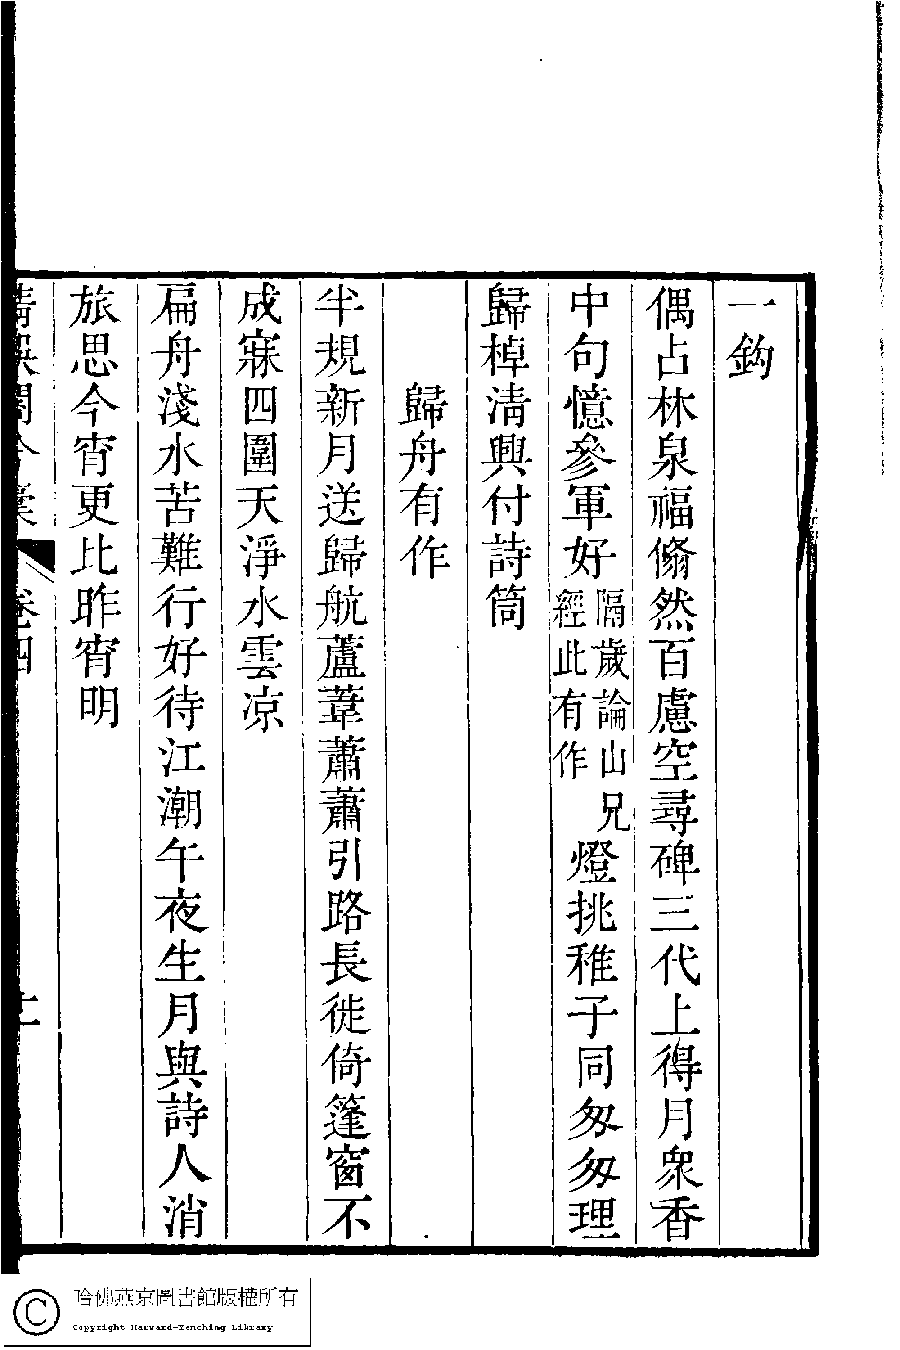 一鈎
偶占林泉福翛然百慮空尋碑三代上得月衆香
中句憶參軍好隔歲論山兄經此有作燈挑稚子同匆匆理
歸棹清興付詩筒
歸舟有作
半規新月送歸航蘆葦蕭蕭引路長徙倚篷窗不
成寐四圍天淨水雲凉
扁舟淺水苦難行好待江潮午夜生月與詩人消
旅思今宵更比昨宵明
卷四
哈佛燕京圖書館版權所有
Copyright Harvard-Yenching Library